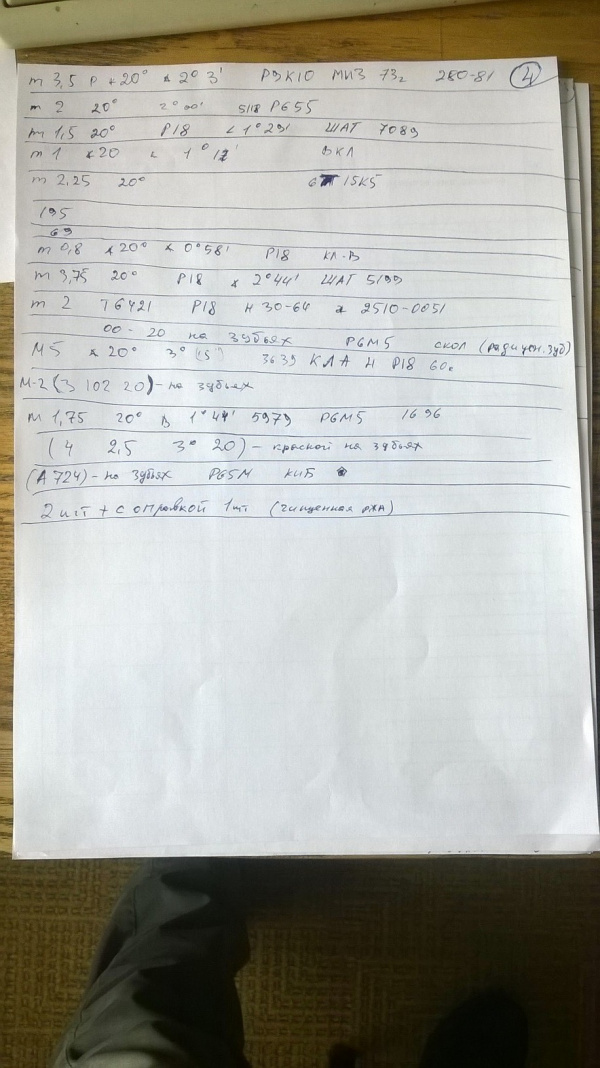 ④
m 3,5 P ∢20° ∢ 2° 3' Р9К10 МИЗ 73г 280-81
m 2 20° 2°00' 5118 Р6 55
m 1,5 20° Р18 < 1°29' ШАТ 7089
m 1 ∢20 < 1° ВКЛ
m 2,25 20° 15К5
195
69
m 0,8 ∢20° ∢ 0°58' Р18 КЛ-В
m 3,75 20° Р18 ∢ 2°44' ШАТ 5199
m 2 Т6421 Р18 Н30-64 2510-0051
00-20 на зубьях Р6М5 скол
М5 ∢20° 3° 3639 КЛА Н Р18 60г
М-2 (3 102 20) - на зубьях
m 1,75 20° В 1°44' 5979 Р6М5 1696
(4 2,5 3° 20) - краской на зубьях
(А 724) - на зубьях Р65М КИБ
2 шт + с оправкой 1 шт (чищенная ржа)